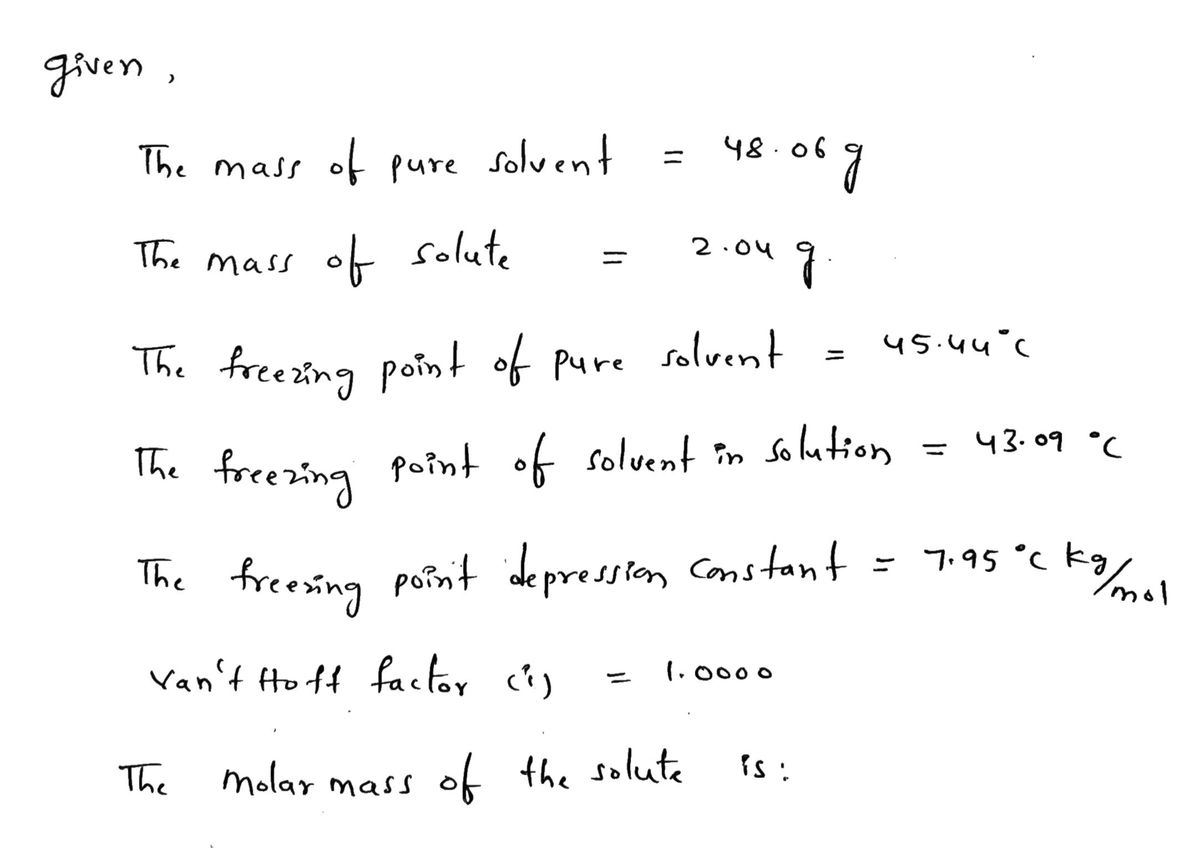 given,
The mass of pure solvent = 48.06 g
The mass of solute = 2.04 g.
The freezing point of pure solvent = 45.44°C
The freezing point of solvent in solution = 43.09 °C
The freezing point depression constant = 7.95 °C kg/mol
Van't Hoff factor (i) = 1.0000
The molar mass of the solute is: